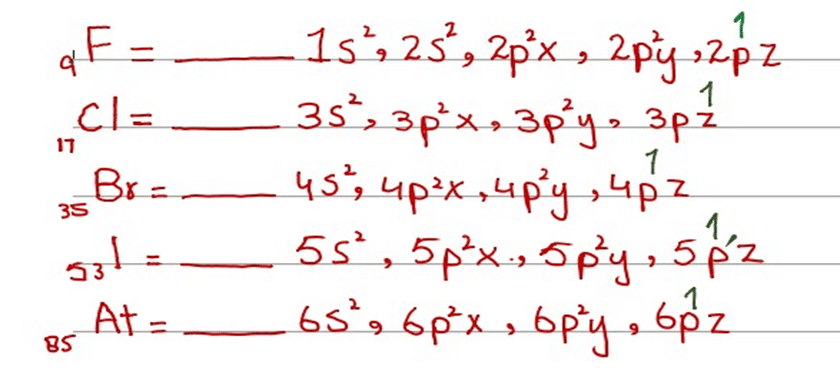 ₉F = _____ 1s², 2s², 2p²x, 2p²y, 2p¹z
₁₇Cl = _____ 3s², 3p²x, 3p²y, 3p¹z
₃₅Br = _____ 4s², 4p²x, 4p²y, 4p¹z
₅₃I = _____ 5s², 5p²x, 5p²y, 5p¹z
₈₅At = _____ 6s², 6p²x, 6p²y, 6p¹z